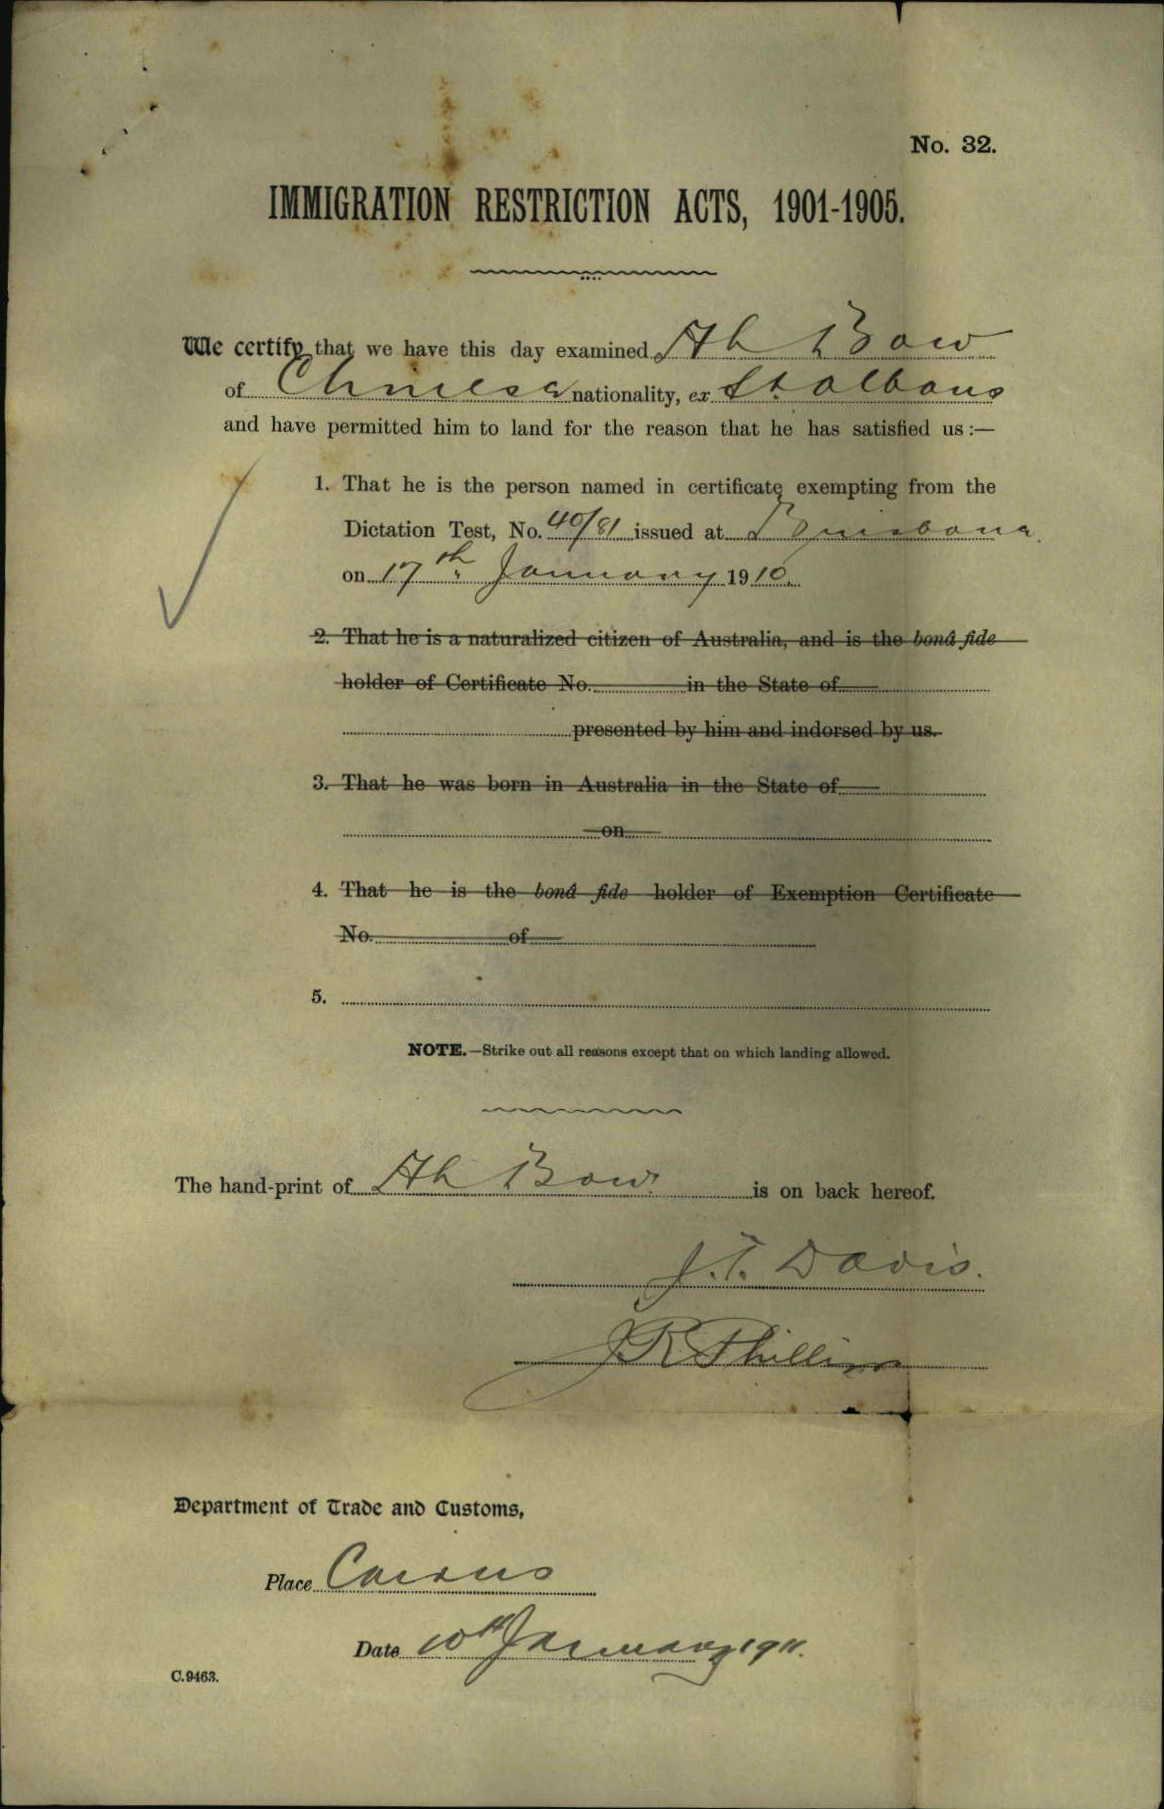 No. 32.
IMMIGRATION RESTRICTION ACTS, 1901-1905.
We certify that we have this day examined Ah Bow
of Chinese nationality, ex St. Albans
and have permitted him to land for the reason that he has satisfied us :—
1. That he is the person named in certificate exempting from the
Dictation Test, No. 40/81 issued at Brisbane
on 17th January 1910.
2. That he is a naturalized citizen of Australia, and is the bonâ fide
holder of Certificate No. in the State of
presented by him and indorsed by us.
3. That he was born in Australia in the State of
on
4. That he is the bonâ fide holder of Exemption Certificate
No. of
5.
NOTE.—Strike out all reasons except that on which landing allowed.
The hand-print of Ah Bow is on back hereof.
J. T. Davis.
J R Phillips
Department of Trade and Customs,
Place Cairns
Date 10th January 1911.
C.9463.